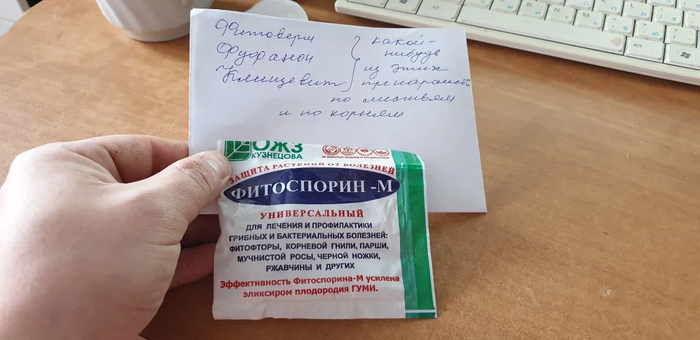 Фитоверм
Фуфанон
Клещевит
какой-
нибудь
из этих
препаратов
по листьям
и по корням
ОЖЗ
КУЗНЕЦОВА
ЗАЩИТА РАСТЕНИЙ ОТ БОЛЕЗНЕЙ
ФИТОСПОРИН -М
УНИВЕРСАЛЬНЫЙ
ДЛЯ ЛЕЧЕНИЯ И ПРОФИЛАКТИКИ
ГРИБНЫХ И БАКТЕРИАЛЬНЫХ БОЛЕЗНЕЙ:
ФИТОФТОРЫ, КОРНЕВОЙ ГНИЛИ, ПАРШИ,
МУЧНИСТОЙ РОСЫ, ЧЕРНОЙ НОЖКИ,
РЖАВЧИНЫ И ДРУГИХ
Эффективность Фитоспорина-М усилена
эликсиром плодородия ГУМИ.